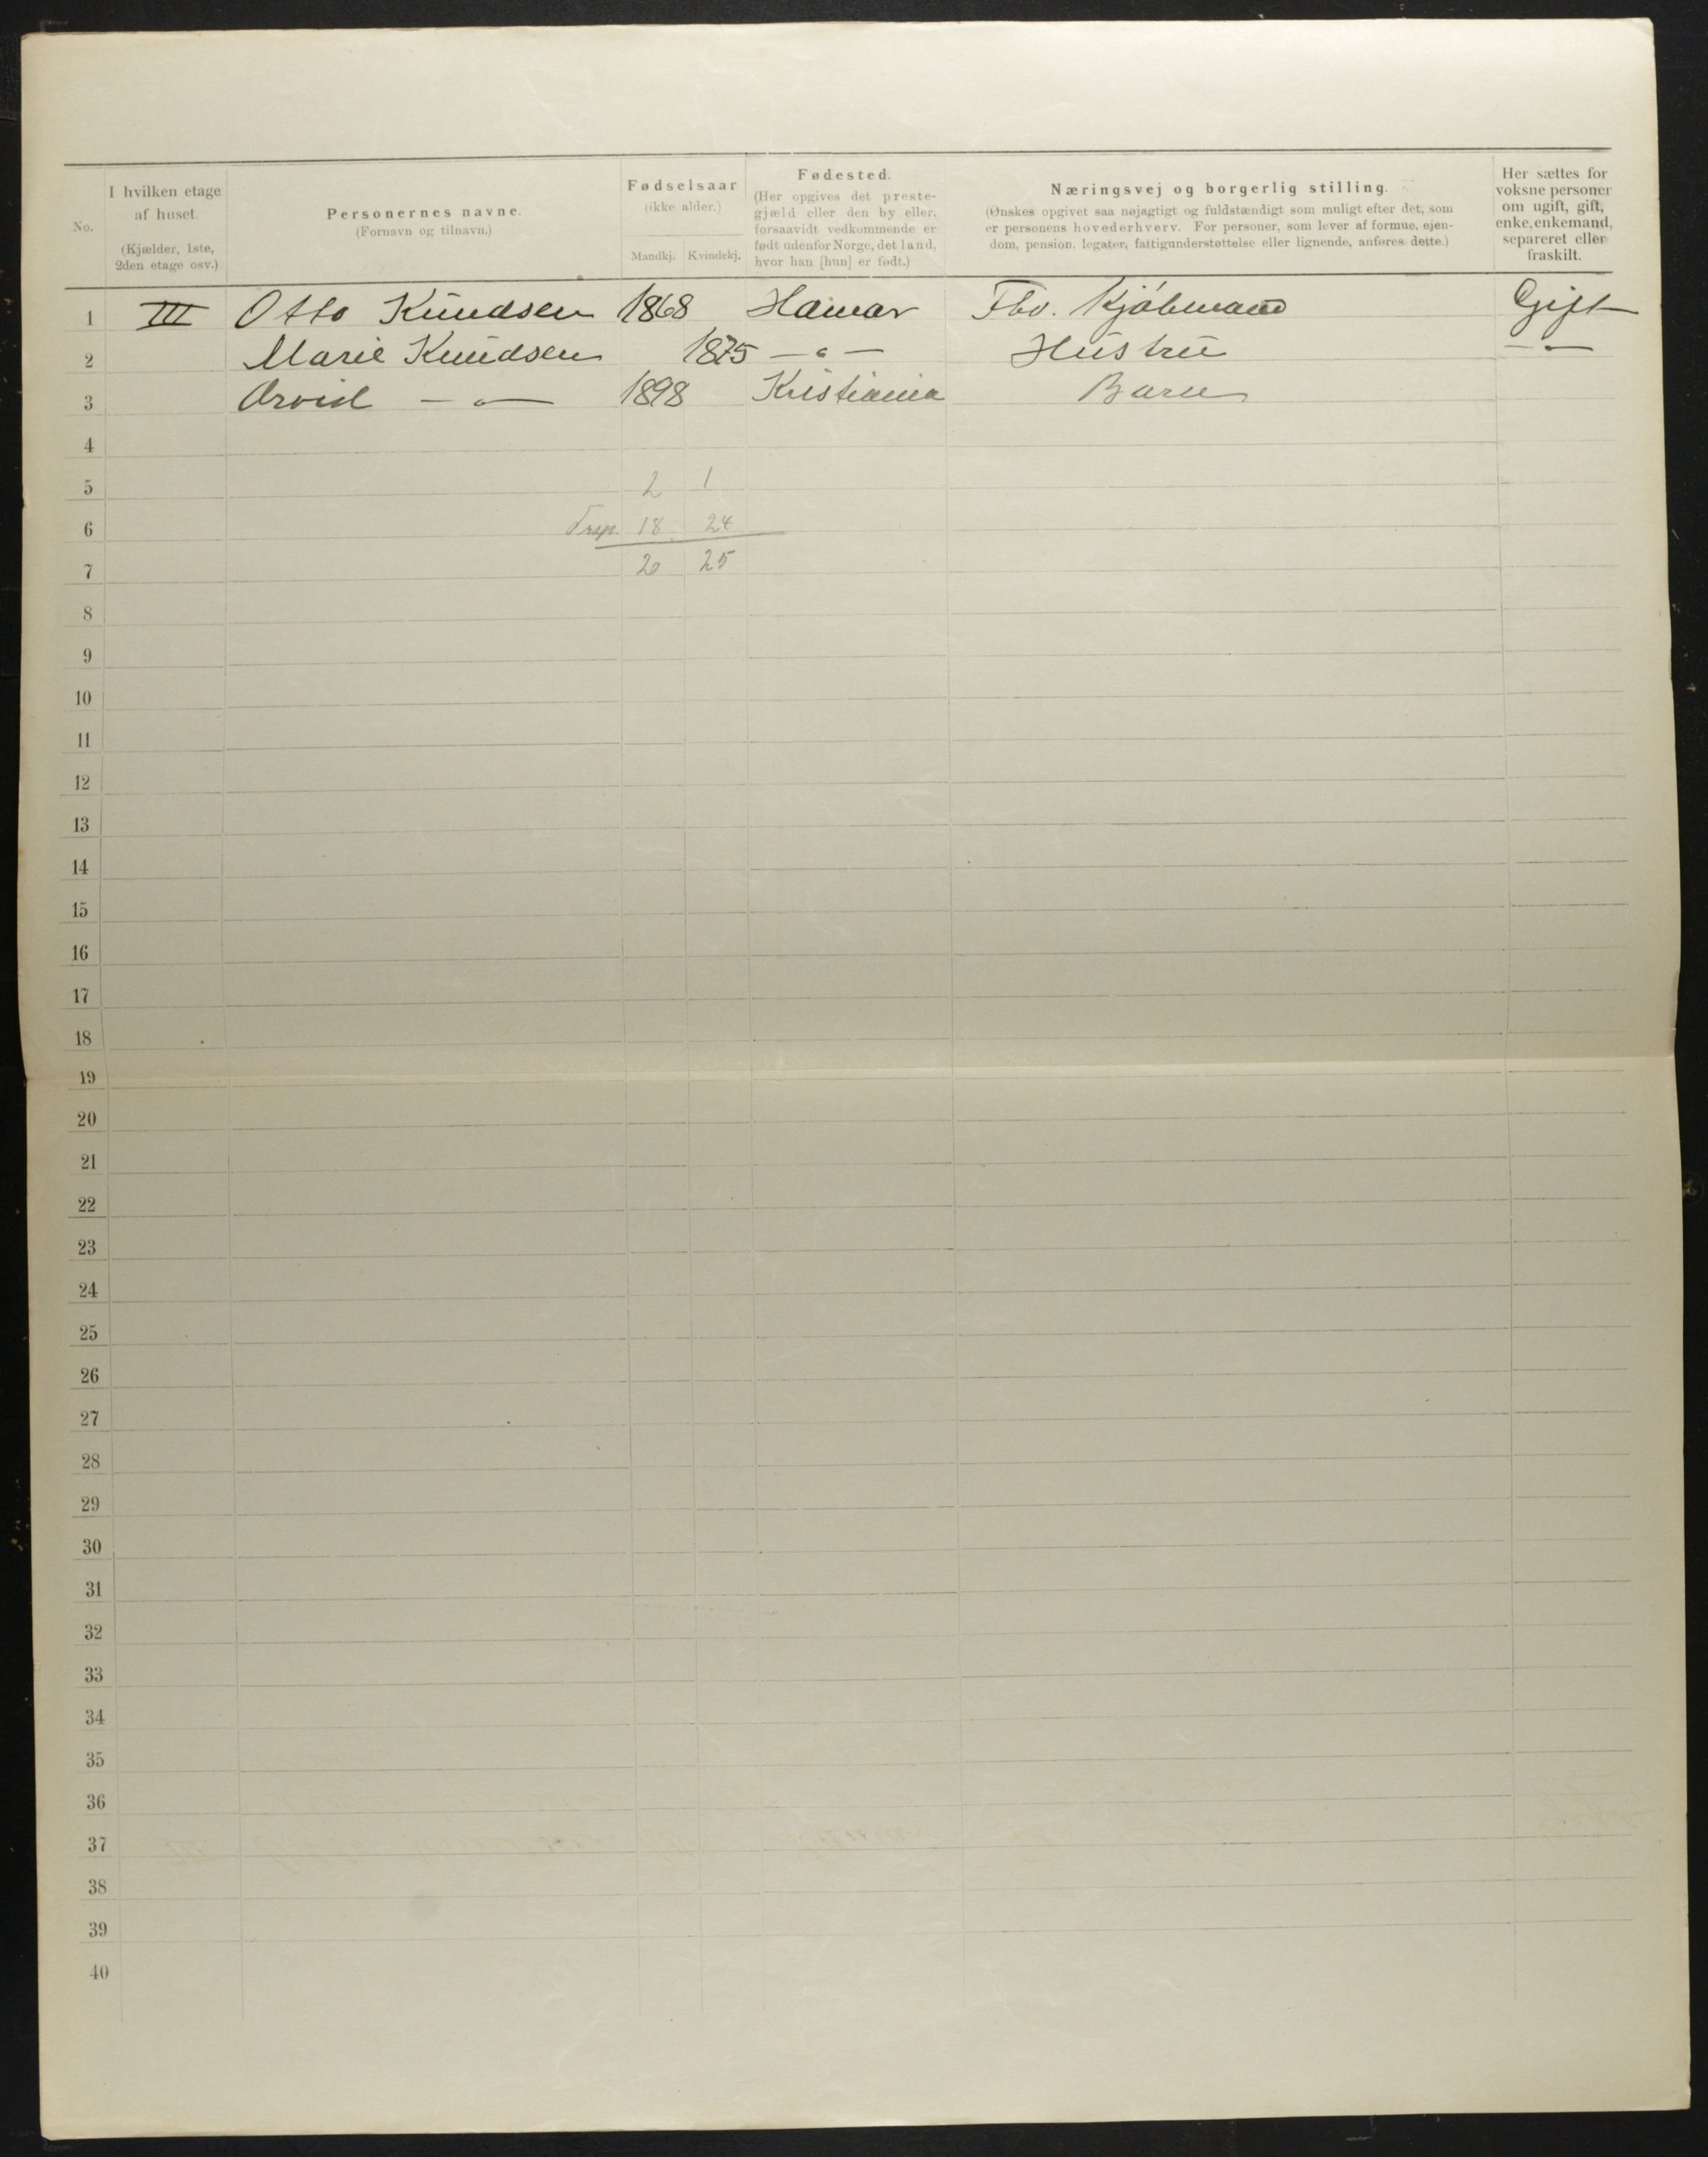 No.
I hvilken etage
af huset.
(Kjælder, 1ste,
2den etage osv.)
Personernes navne.
(Fornavn og tilnavn.)
Fødselsaar
(ikke alder.)
Mandkj. Kvindekj.
Fødested.
(Her opgives det preste-
gjæld eller den by eller,
forsaavidt vedkommende er
født udenfor Norge, det land,
hvor han [hun] er født.)
Næringsvej og borgerlig stilling.
(Ønskes opgivet saa nøjagtigt og fuldstændigt som muligt efter det, som
er personens hovederhverv. For personer, som lever af formue, ejen-
dom, pension, legater, fattigunderstøttelse eller lignende, anføres dette.)
Her sættes for
voksne personer
om ugift, gift,
enke, enkemand,
separeret eller
fraskilt.
1 III Otto Knudsen 1868 Hamar Fhv. Kjøbmand Gift
2 Marie Knudsen 1875 — " — Hustru — " —
3 Arvid — " — 1898 Kristiania Barn
4
5 2 1
6 Trsp. 18 24
7 20 25
8
9
10
11
12
13
14
15
16
17
18
19
20
21
22
23
24
25
26
27
28
29
30
31
32
33
34
35
36
37
38
39
40